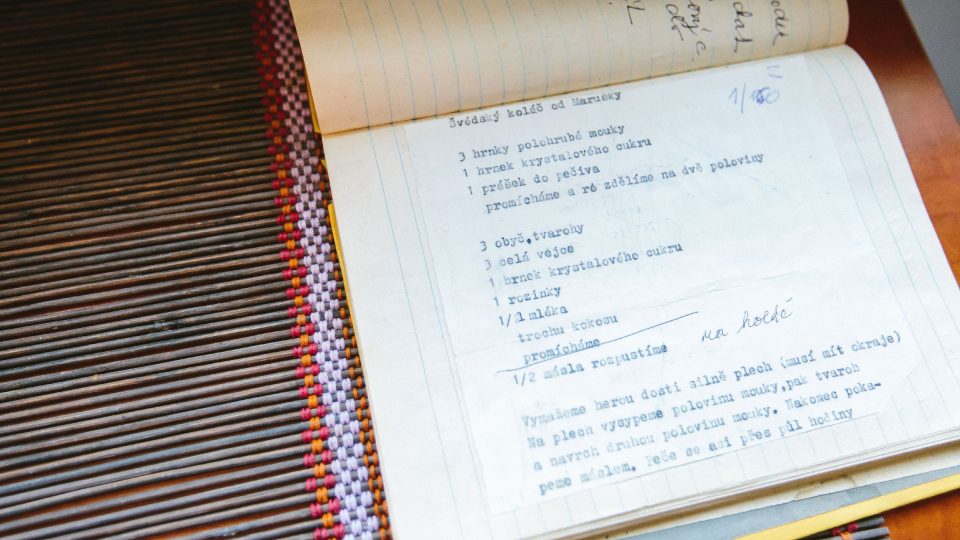 Švédský koláč od Marušky
1/160
3 hrnky polohrubé mouky
1 hrnek krystalového cukru
1 prášek do pečiva
promícháme a ro zdělíme na dvě poloviny
3 obyč,tvarohy
3 celá vejce
1 hrnek krystalového cukru
1 rozinky
1/2l mléka
trochu kokosu
promícháme
1/2 másla rozpustíme
Vymažeme herou dosti silně plech (musí mít okraje)
Na plech vysypeme polovinu mouky,pak tvaroh
a navrch druhou polovinu mouky. Nakonec poka-
peme máslem. Peče se asi přes půl hodiny